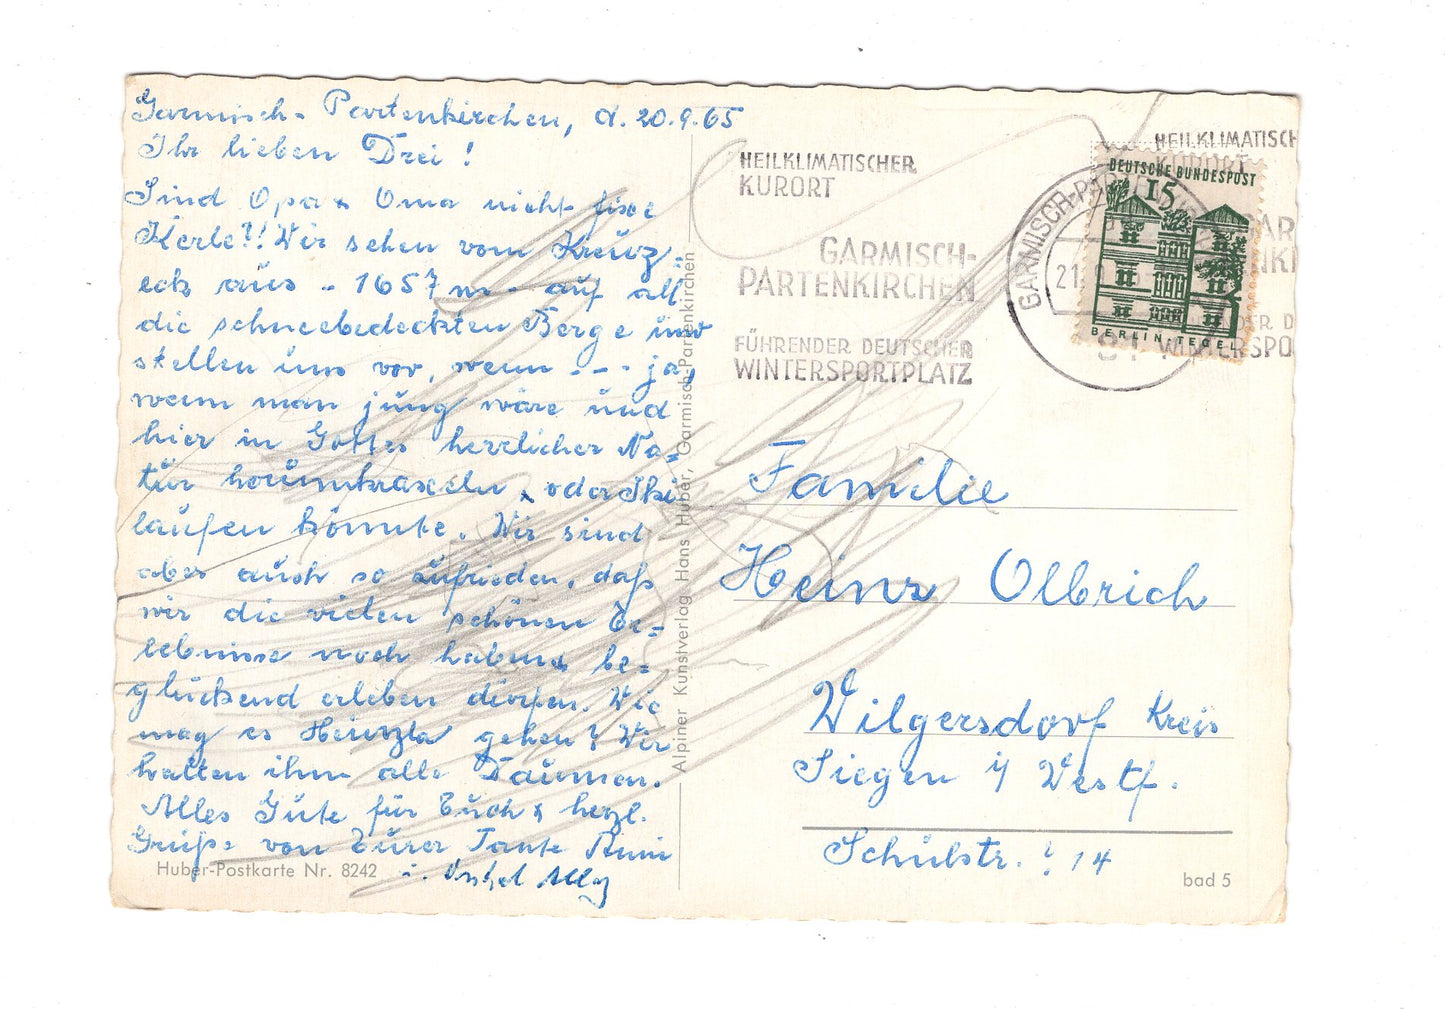 Garmisch-Partenkirchen, d. 20.9.65
Ihr lieben Drei!
Sind Opa & Oma nicht fixe
Kerle?! Wir sehen vom Kreuz-
eck aus - 1657 m - auf all
die schneebedeckten Berge und
stellen uns vor, wenn --- ja,
wenn man jung wäre und
hier in Gottes herrlicher Na=
tur herumkraxeln, oder Ski
laufen könnte. Wir sind
aber auch so zufrieden, daß
wir die vielen schönen Er=
lebnisse noch haben & be=
glückend erleben dürfen. Wie
mag es Heinzla gehen? Wir
halten ihm alle Daumen.
Alles Gute für Euch & herzl.
Grüße von Eurer Tante Anni
u. Onkel
Huber-Postkarte Nr. 8242
Alpiner Kunstverlag Hans Huber, Garmisch-Partenkirchen
HEILKLIMATISCHER
KURORT
GARMISCH-
PARTENKIRCHEN
FÜHRENDER DEUTSCHER
WINTERSPORTPLATZ
GARMISCH-PAR
21.
81
HEILKLIMATISCH
KURORT
GAR
NKI
DER D
WINTERSPO
DEUTSCHE BUNDESPOST
15
BERLIN TEGEL
Familie
Heinz Olbrich
Wilgersdorf Kreis
Siegen i/ Westf.
Schulstr. ? 14
bad 5